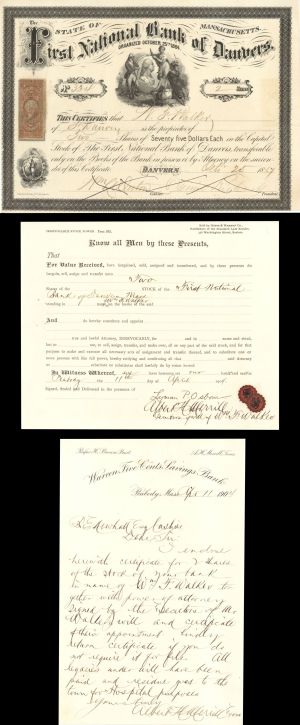 The
STATE OF
MASSACHUSETTS.
First National Bank of Danvers.
ORGANIZED OCTOBER 25TH 1864.
THIS CERTIFIES that W. F. Walker
of S. Danvers is the proprietor of
Two Shares of Seventy five Dollars Each in the Capital
Stock of The First National Bank of Danvers, transferable
only on the Books of the Bank in person or by Attorney on the surren-
der of this Certificate.
DANVERS
186
Cashier.
President.
IRREVOCABLE STOCK POWER
Know all Men by these Presents,
That
For Value Received, have bargained, sold, assigned and transferred, and by these presents do
bargain, sell, assign and transfer unto
Two
Shares of the STOCK of the First National
Bank of Danvers Mass
standing in name on the books of the
And do hereby constitute and appoint
true and lawful Attorney, IRREVOCABLY, for and in name and stead,
but to use, to sell, assign, transfer, and make over, all or any part of the said stock, and for that
purpose to make and execute all necessary acts of assignment and transfer thereof, and to substitute one or
more persons with like full power, hereby ratifying and confirming all that said Attorney or
substitute or substitutes shall lawfully do by virtue hereof.
In Witness Whereof, we have hereunto set our hand and seal
11th day of April
Signed, Sealed and Delivered in the presence of
Lyman P. Osborn
Albert H. Merrill
Wm F Walker
Warren Five Cents Savings Bank,
Peabody, Mass. Apr 11 1904
Newhall Esq Cashier
Dear Sir:
I enclose
herewith certificate for 2 shares
of the stock of your bank
in name of Wm F. Walker to-
gether with power of attorney
signed by the executors of Mr
Walker's will and certificate
of their appointment. Kindly
return certificate if you do
not require it for file. All
legacies under will have been
paid and residue goes to the
town for Hospital purposes
Yours truly
Albert H. Merrill Exor